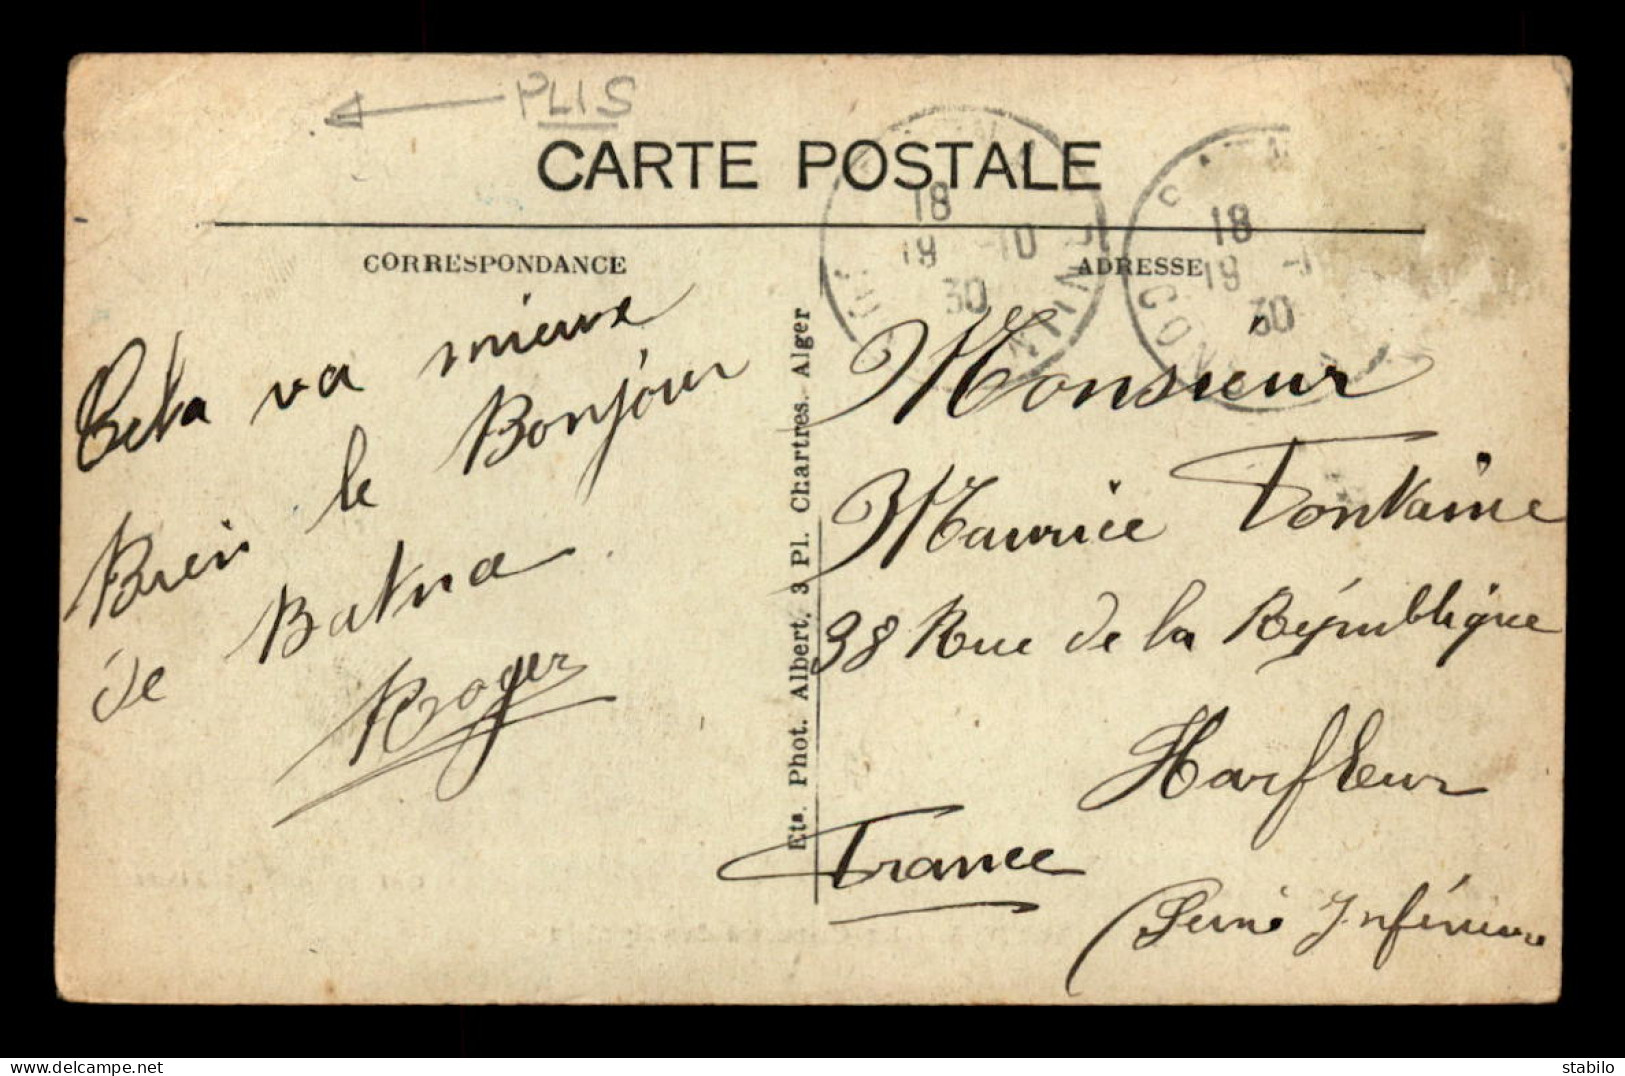 PLIS
CARTE POSTALE
CORRESPONDANCE
ADRESSE
18
19 -10
30
18
19 -1
30
Cela va mieux
Bien le Bonjour
de Batna
Roger
Ets. Phot. Albert, 3 Pl. Chartres. Alger
Monsieur
Maurice Fontaine
98 Rue de la République
Harfleur
France
(Seine Inférieure
stabilo
delcampe.net